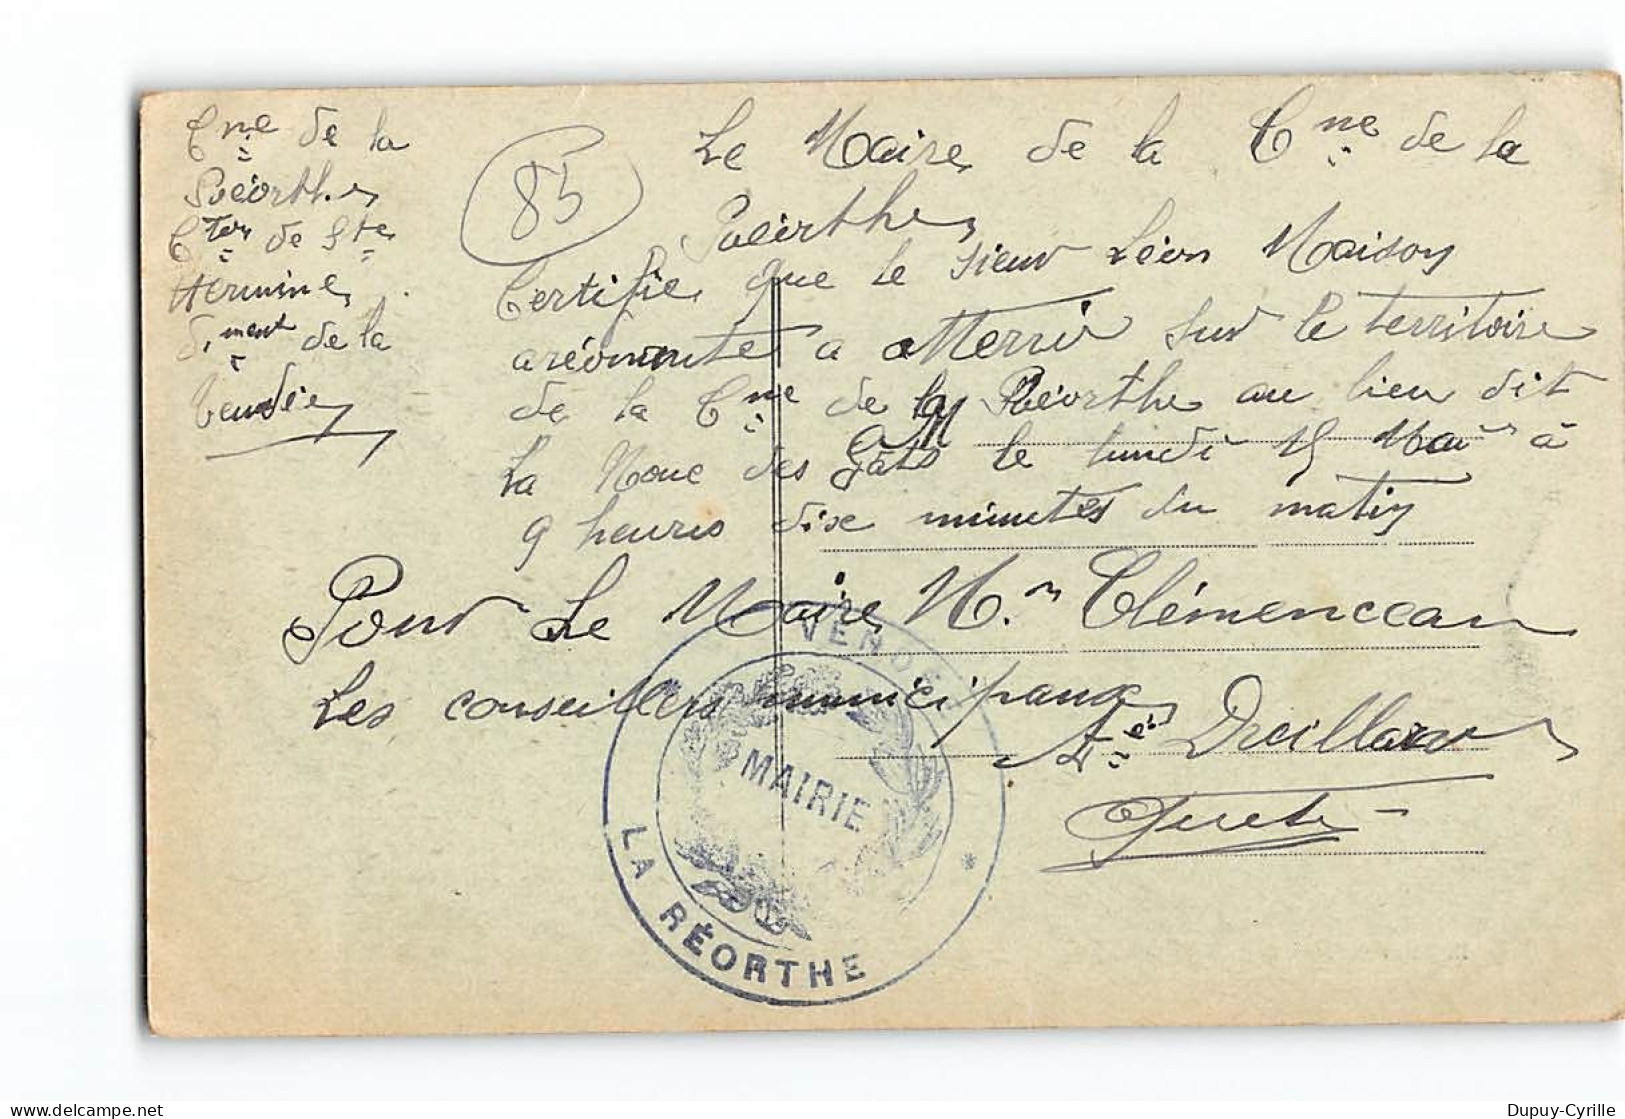 Cne de la
Réorthe
Cton de Ste
Hermine
D.ment de la
Vendée
85
Le Maire de la Cne de la
Réorthe
Certifie que le sieur Léon Maison
aréonaute a atterri sur le territoire
de la Cne de la Réorthe au lieu dit
La Noue des Gâts le lundi 15 Mai à
9 heures dix minutes du matin
Pour Le Maire Mr Clémenceau
Les conseillers municipaux
VENDÉE
MAIRIE
LA RÉORTHE
Dupuy-Cyrille
www.delcampe.net